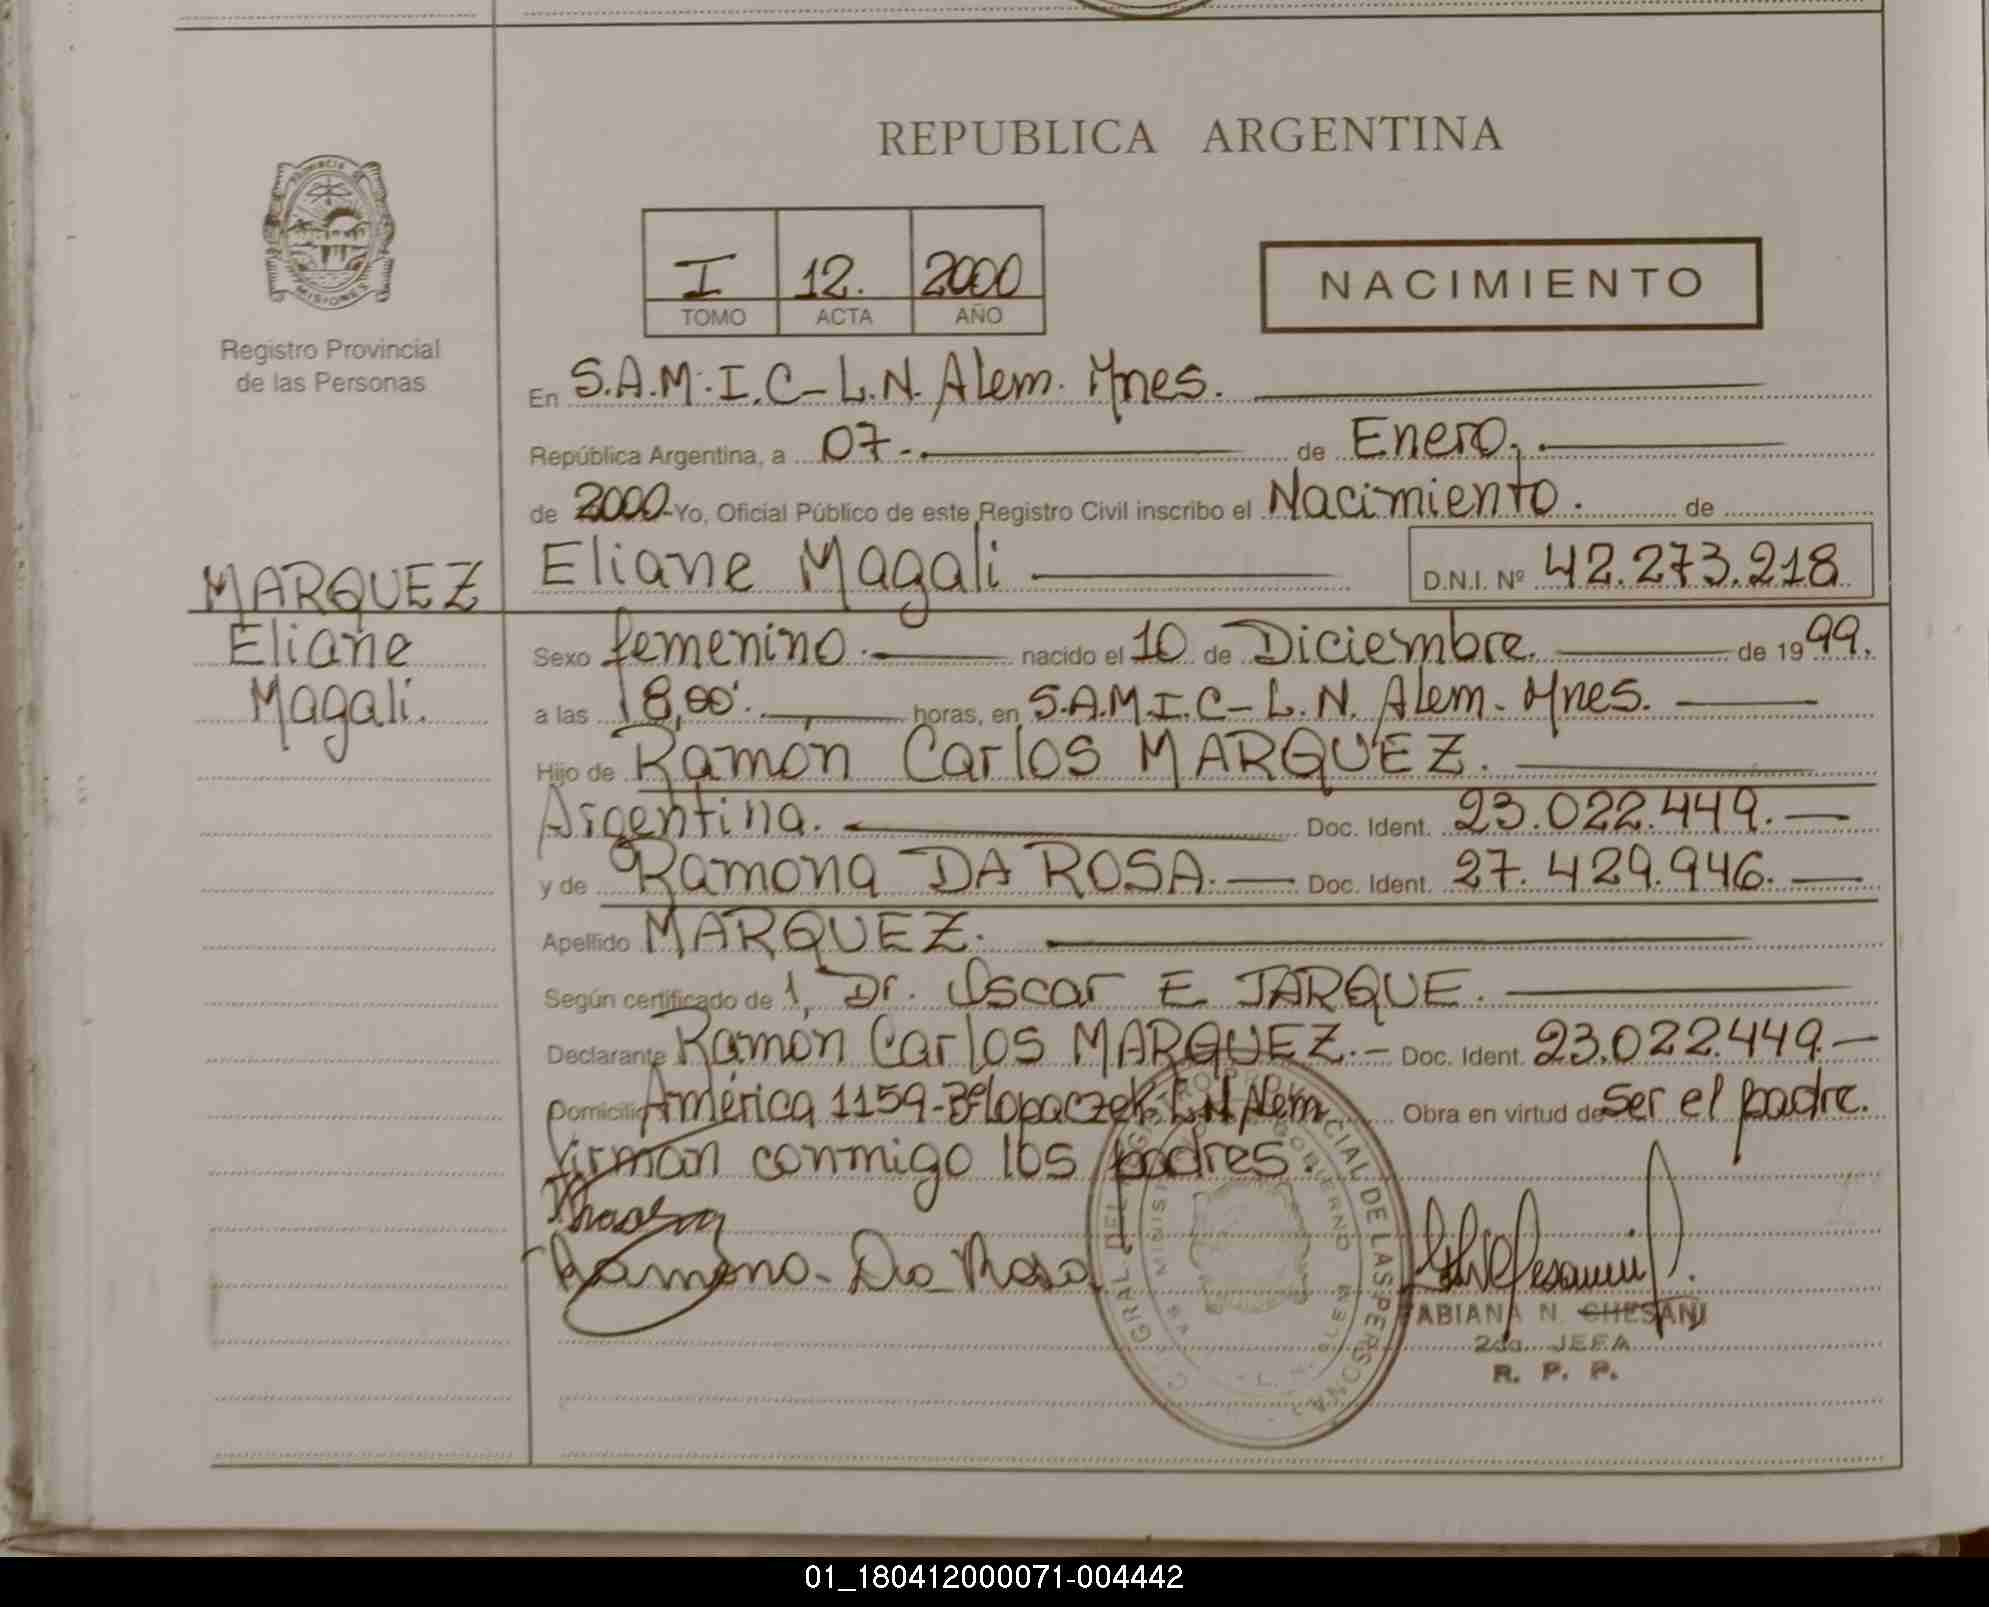 REPUBLICA ARGENTINA
PROVINCIA DE
MISIONES
Registro Provincial
de las Personas
I 12. 2000
TOMO ACTA AÑO
NACIMIENTO
En S.A.M.I.C - L.N. Alem. Mnes.
República Argentina, a 07.- de Enero,.
de 2000 - Yo, Oficial Público de este Registro Civil inscribo el Nacimiento. de
Eliane Magali D.N.I. Nº 42.273.218
MARQUEZ
Eliane
Magali.
Sexo femenino. nacido el 10 de Diciembre. de 19 99.
a las 18,00'. horas, en S.A.M.I.C - L.N. Alem. Mnes.
Hijo de Ramón Carlos MARQUEZ.
Argentina. Doc. Ident. 23.022.449.
y de Ramona DA ROSA. Doc. Ident. 27.429.946.
Apellido MARQUEZ.
Según certificado de 1, Dr. Oscar E JARQUE.
Declarante Ramón Carlos MARQUEZ. - Doc. Ident. 23.022.449.
Domicilio América 1159 - Bº Lopaczek L.N. Alem Obra en virtud de Ser el padre.
firman conmigo los padres.
Ramona Da Rosa
FABIANA N. CHESANI
2da. JEFA
R. P. P.
01_180412000071-004442